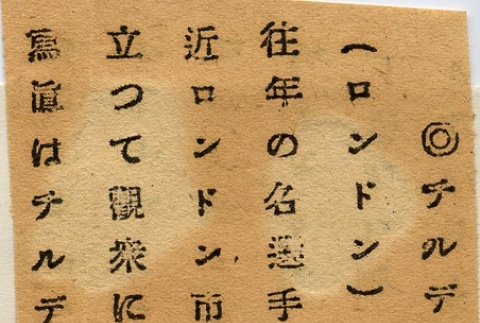 ◎チルデ
(ロンドン)
往年の名選手
近ロンドン市
立つて觀衆に
寫眞はチルデ